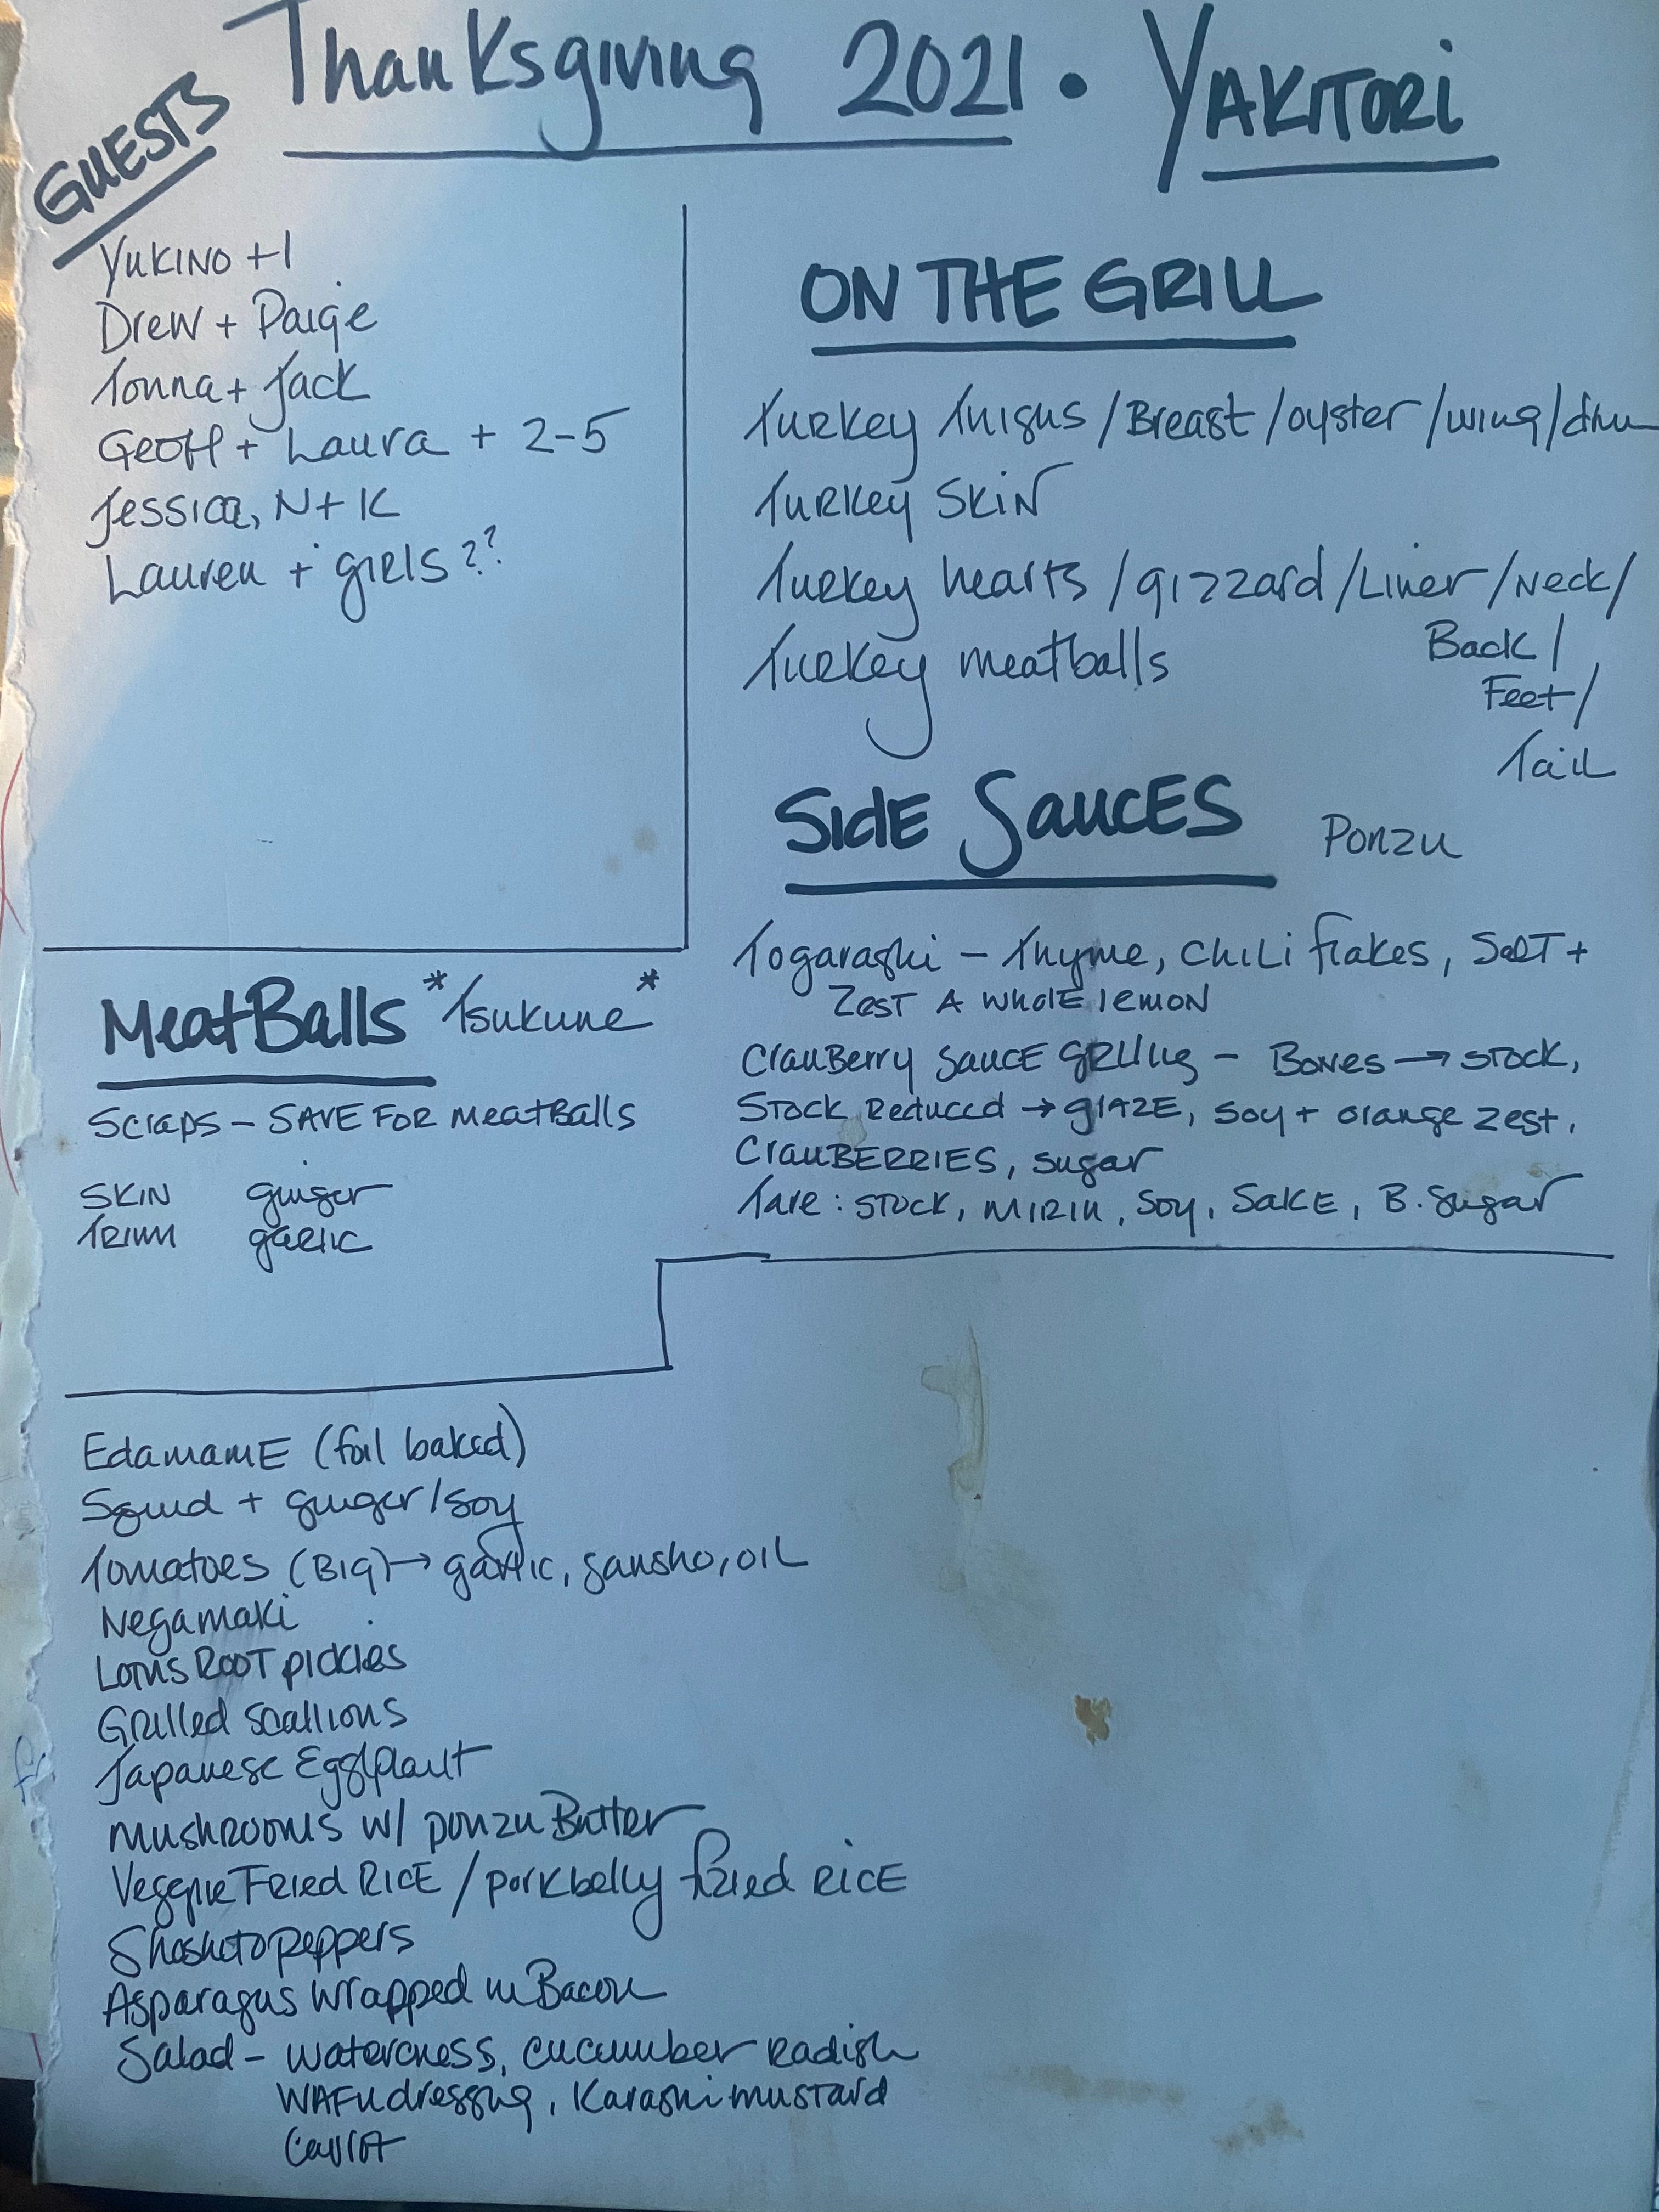 Thanksgiving 2021 • YAKITORI
GUESTS
YUKINO +1
Drew + Paige
Tonna + Jack
Geoff + Laura + 2-5
Jessica, N + K
Lauren + girls ??
ON THE GRILL
Turkey Thighs / Breast / oyster / wing /
Turkey SKIN
Turkey hearts / gizzard / Liver / Neck /
Back /
Feet /
Tail
Turkey meatballs
Side Sauces
Ponzu
Togarashi – Thyme, Chili flakes, Salt +
Zest A whole lemon
CranBerry Sauce – Bones → stock,
Stock Reduced → glaze, soy + orange zest,
CranBERRIES, sugar
Tare : stock, MIRIN, Soy, Sake, B. Sugar
MeatBalls *Tsukune*
Scraps – SAVE FOR Meatballs
SKIN ginger
TRIM garlic
Edamame (foil baked)
Squid + ginger/soy
Tomatoes (Big) → garlic, sansho, oil
Negamaki
Lotus Root pickles
Grilled Scallions
Japanese Eggplant
Mushrooms w/ ponzu Butter
Veggie Fried Rice / porkbelly fried rice
Shoshito peppers
Asparagus wrapped in Bacon
Salad – watercress, cucumber radish
WAFU dressing, Karashi mustard
Carrot